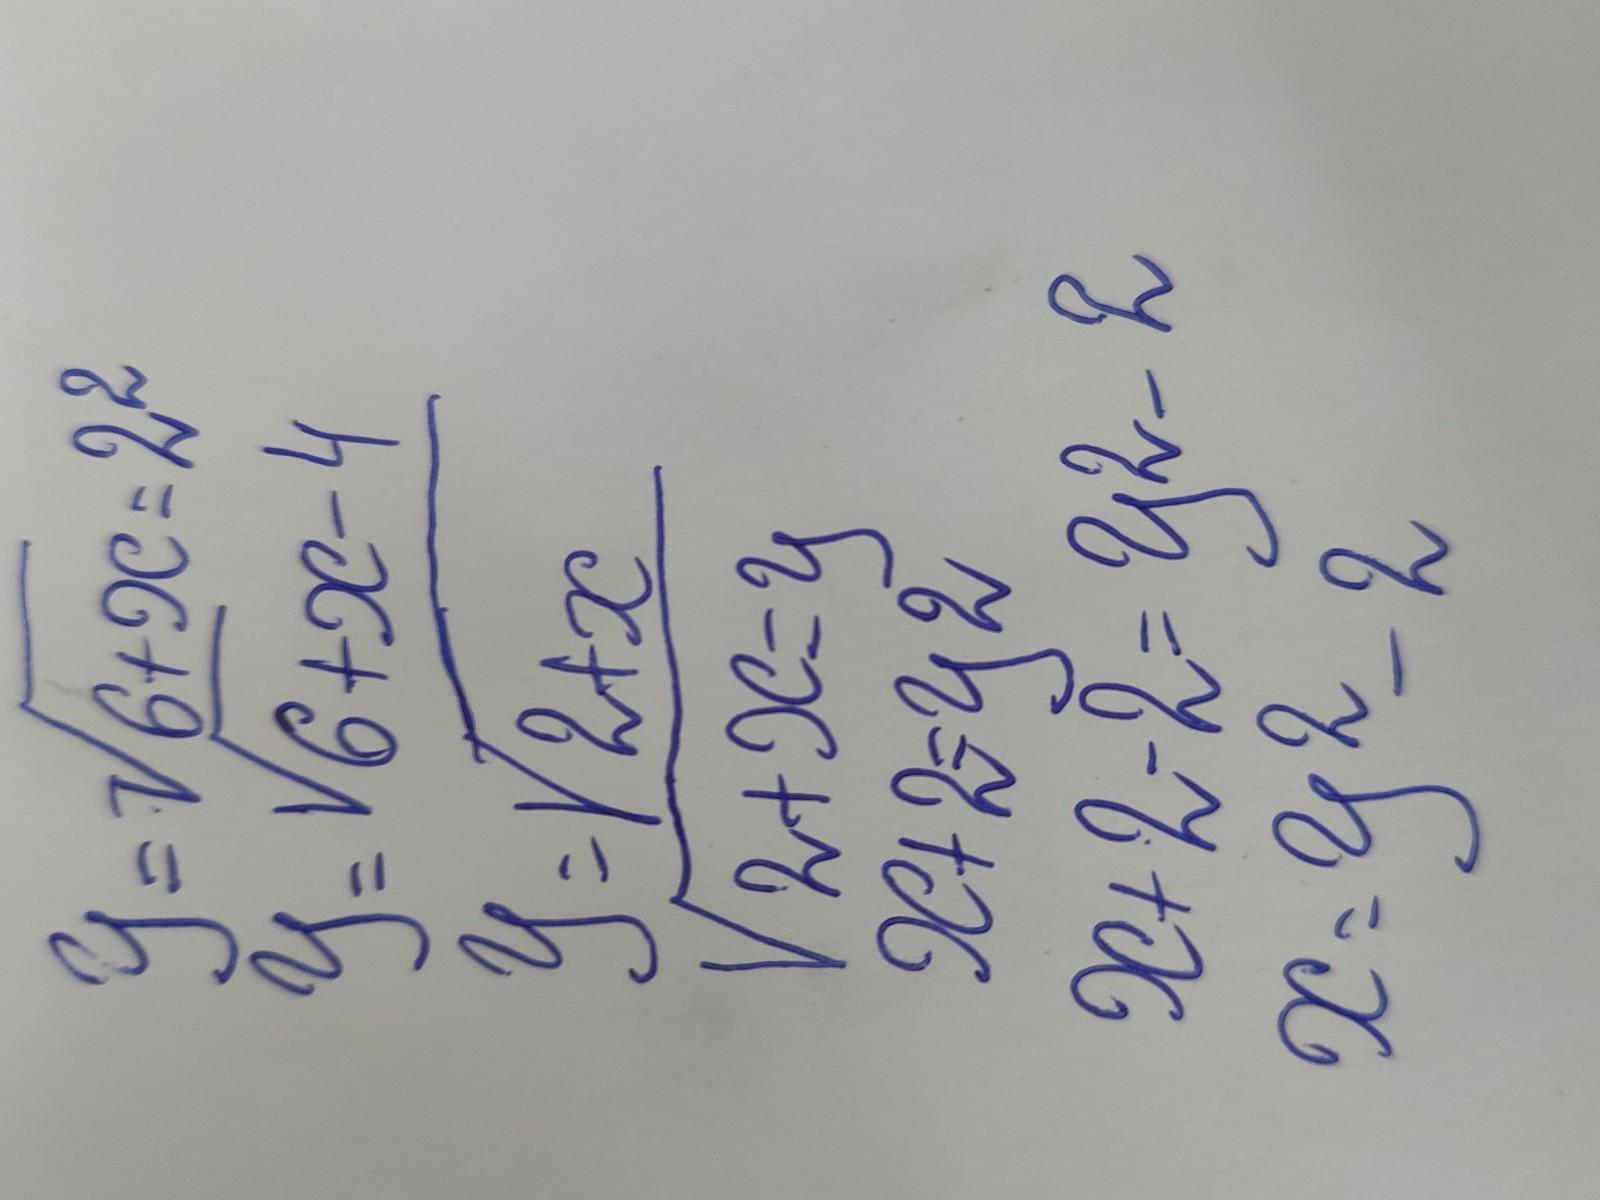 y = √6+x = 2²
y = √6+x-4
y = √2+x
√2+x = y
x+2 = y²
x+2-2 = y²-2
x = y²-2